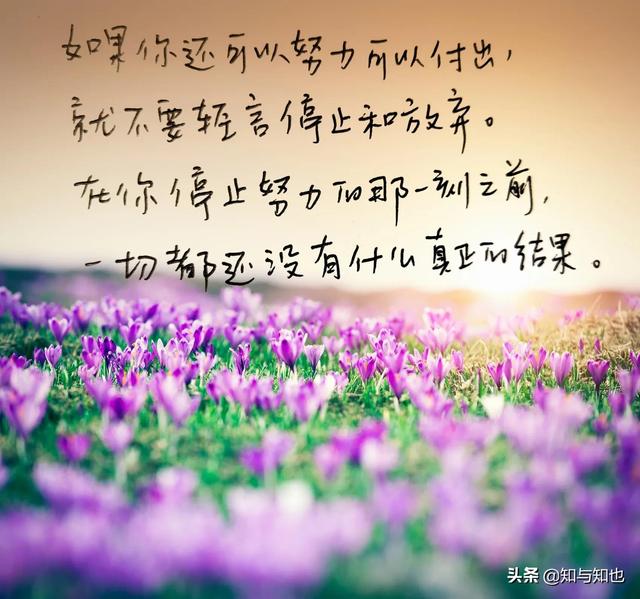 如果你还可以努力可以付出，
就不要轻言停止和放弃。
在你停止努力的那一刻之前，
一切都还没有什么真正的结果。
头条 @知与知也